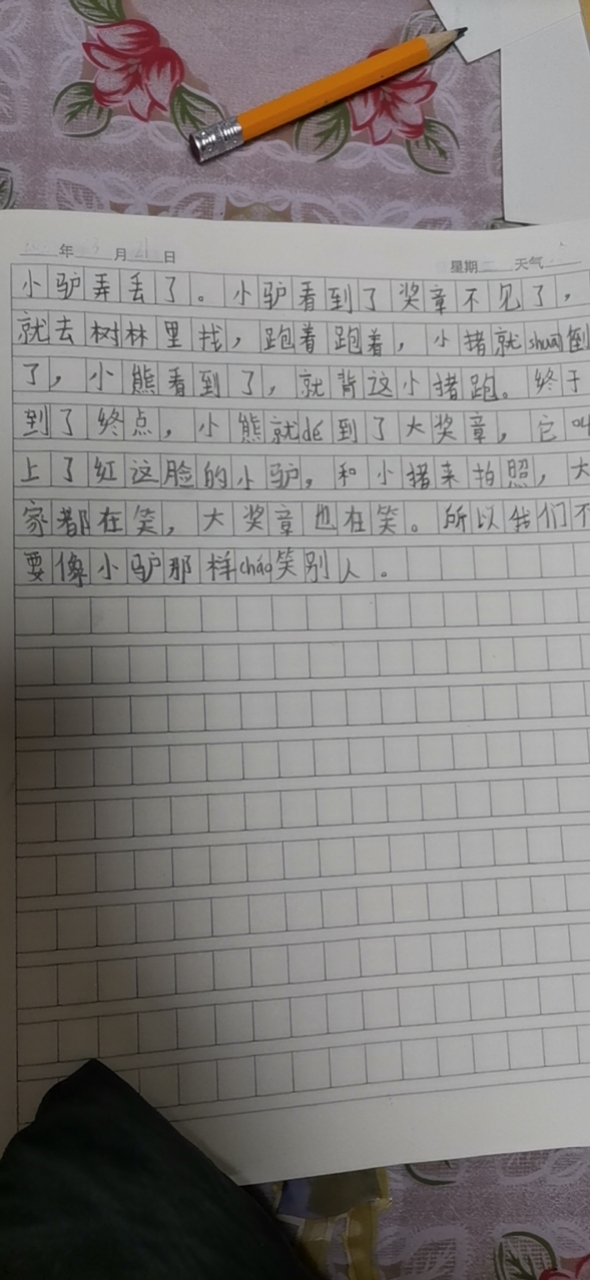 年 月 21 日 星期 天气
小驴弄丢了。小驴看到了奖章不见了，
就去树林里找，跑着跑着，小猪就shuāi倒
了，小熊看到了，就背这小猪跑。终于
到了终点，小熊就dé到了大奖章，它叫
上了红这脸的小驴，和小猪来拍照，大
家都在笑，大奖章也在笑。所以我们不
要像小驴那样cháo笑别人。